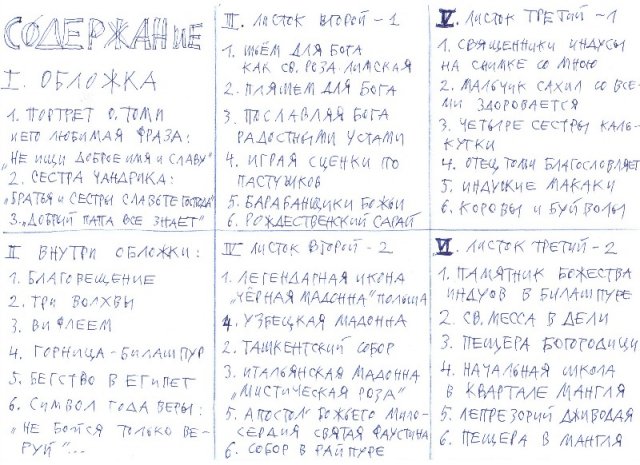 СОДЕРЖАНИЕ
I. ОБЛОЖКА
1. ПОРТРЕТ О. ТОМИ
И ЕГО ЛЮБИМАЯ ФРАЗА:
„НЕ ИЩИ ДОБРОЕ ИМЯ И СЛАВУ"
2. СЕСТРА ЧАНДРИКА:
„БРАТЬЯ И СЕСТРЫ СЛАВЬТЕ ГОСПОДА"
3. „ДОБРЫЙ ПАПА ВСЕ ЗНАЕТ"
II ВНУТРИ ОБЛОЖКИ:
1. БЛАГОВЕЩЕНИЕ
2. ТРИ ВОЛХВЫ
3. ВИФЛЕЕМ
4. ГОРНИЦА - БИЛАШПУР
5. БЕГСТВО В ЕГИПЕТ
6. СИМВОЛ ГОДА ВЕРЫ:
„НЕ БОЙСЯ ТОЛЬКО ВЕ-
РУЙ"...
III. ЛИСТОК ВТОРОЙ - 1
1. ШЬЁМ ДЛЯ БОГА
КАК СВ. РОЗА ЛИМСКАЯ
2. ПЛЯШЕМ ДЛЯ БОГА
3. ПОСЛАВЛЯЯ БОГА
РАДОСТНЫМИ УСТАМИ
4. ИГРАЯ СЦЕНКИ ПО
ПАСТУШКОВ
5. БАРАБАНЩИКИ БОЖЬИ
6. РОЖДЕСТВЕНСКИЙ САРАЙ
IV ЛИСТОК ВТОРОЙ - 2
1. ЛЕГЕНДАРНАЯ ИКОНА
„ЧЁРНАЯ МАДОННА" ПОЛЬША
4. УЗБЕЦКАЯ МАДОННА
2. ТАШКЕНТСКИЙ СОБОР
3. ИТАЛЬЯНСКАЯ МАДОННА
„МИСТИЧЕСКАЯ РОЗА"
5. АПОСТОЛ БОЖЬЕГО МИЛО-
СЕРДИЯ СВЯТАЯ ФАУСТИНА
6. СОБОР В РАЙПУРЕ
V. ЛИСТОК ТРЕТИЙ - 1
1. СВЯЩЕННИКИ ИНДУСЫ
НА СНИМКЕ СО МНОЮ
2. МАЛЬЧИК САХИЛ СО ВСЕ-
МИ ЗДОРОВАЕТСЯ
3. ЧЕТЫРЕ СЕСТРЫ КАЛЬ-
КУТКИ
4. ОТЕЦ ТОМИ БЛАГОСЛОВЛЯЕТ
5. ИНДУЖИЕ МАКАКИ
6. КОРОВЫ И БУЙВОЛЫ
VI. ЛИСТОК ТРЕТИЙ - 2
1. ПАМЯТНИК БОЖЕСТВА
ИНДУОВ В БИЛАШПУРЕ
2. СВ. МЕССА В ДЕЛИ
3. ПЕЩЕРА БОГОРОДИЦИ
4. НАЧАЛЬНАЯ ШКОЛА
В КВАРТАЛЕ МАНГЛЯ
5. ЛЕПРЕЗОРИЙ ДЖИВОДАЯ
6. ПЕЩЕРА В МАНГЛЯ